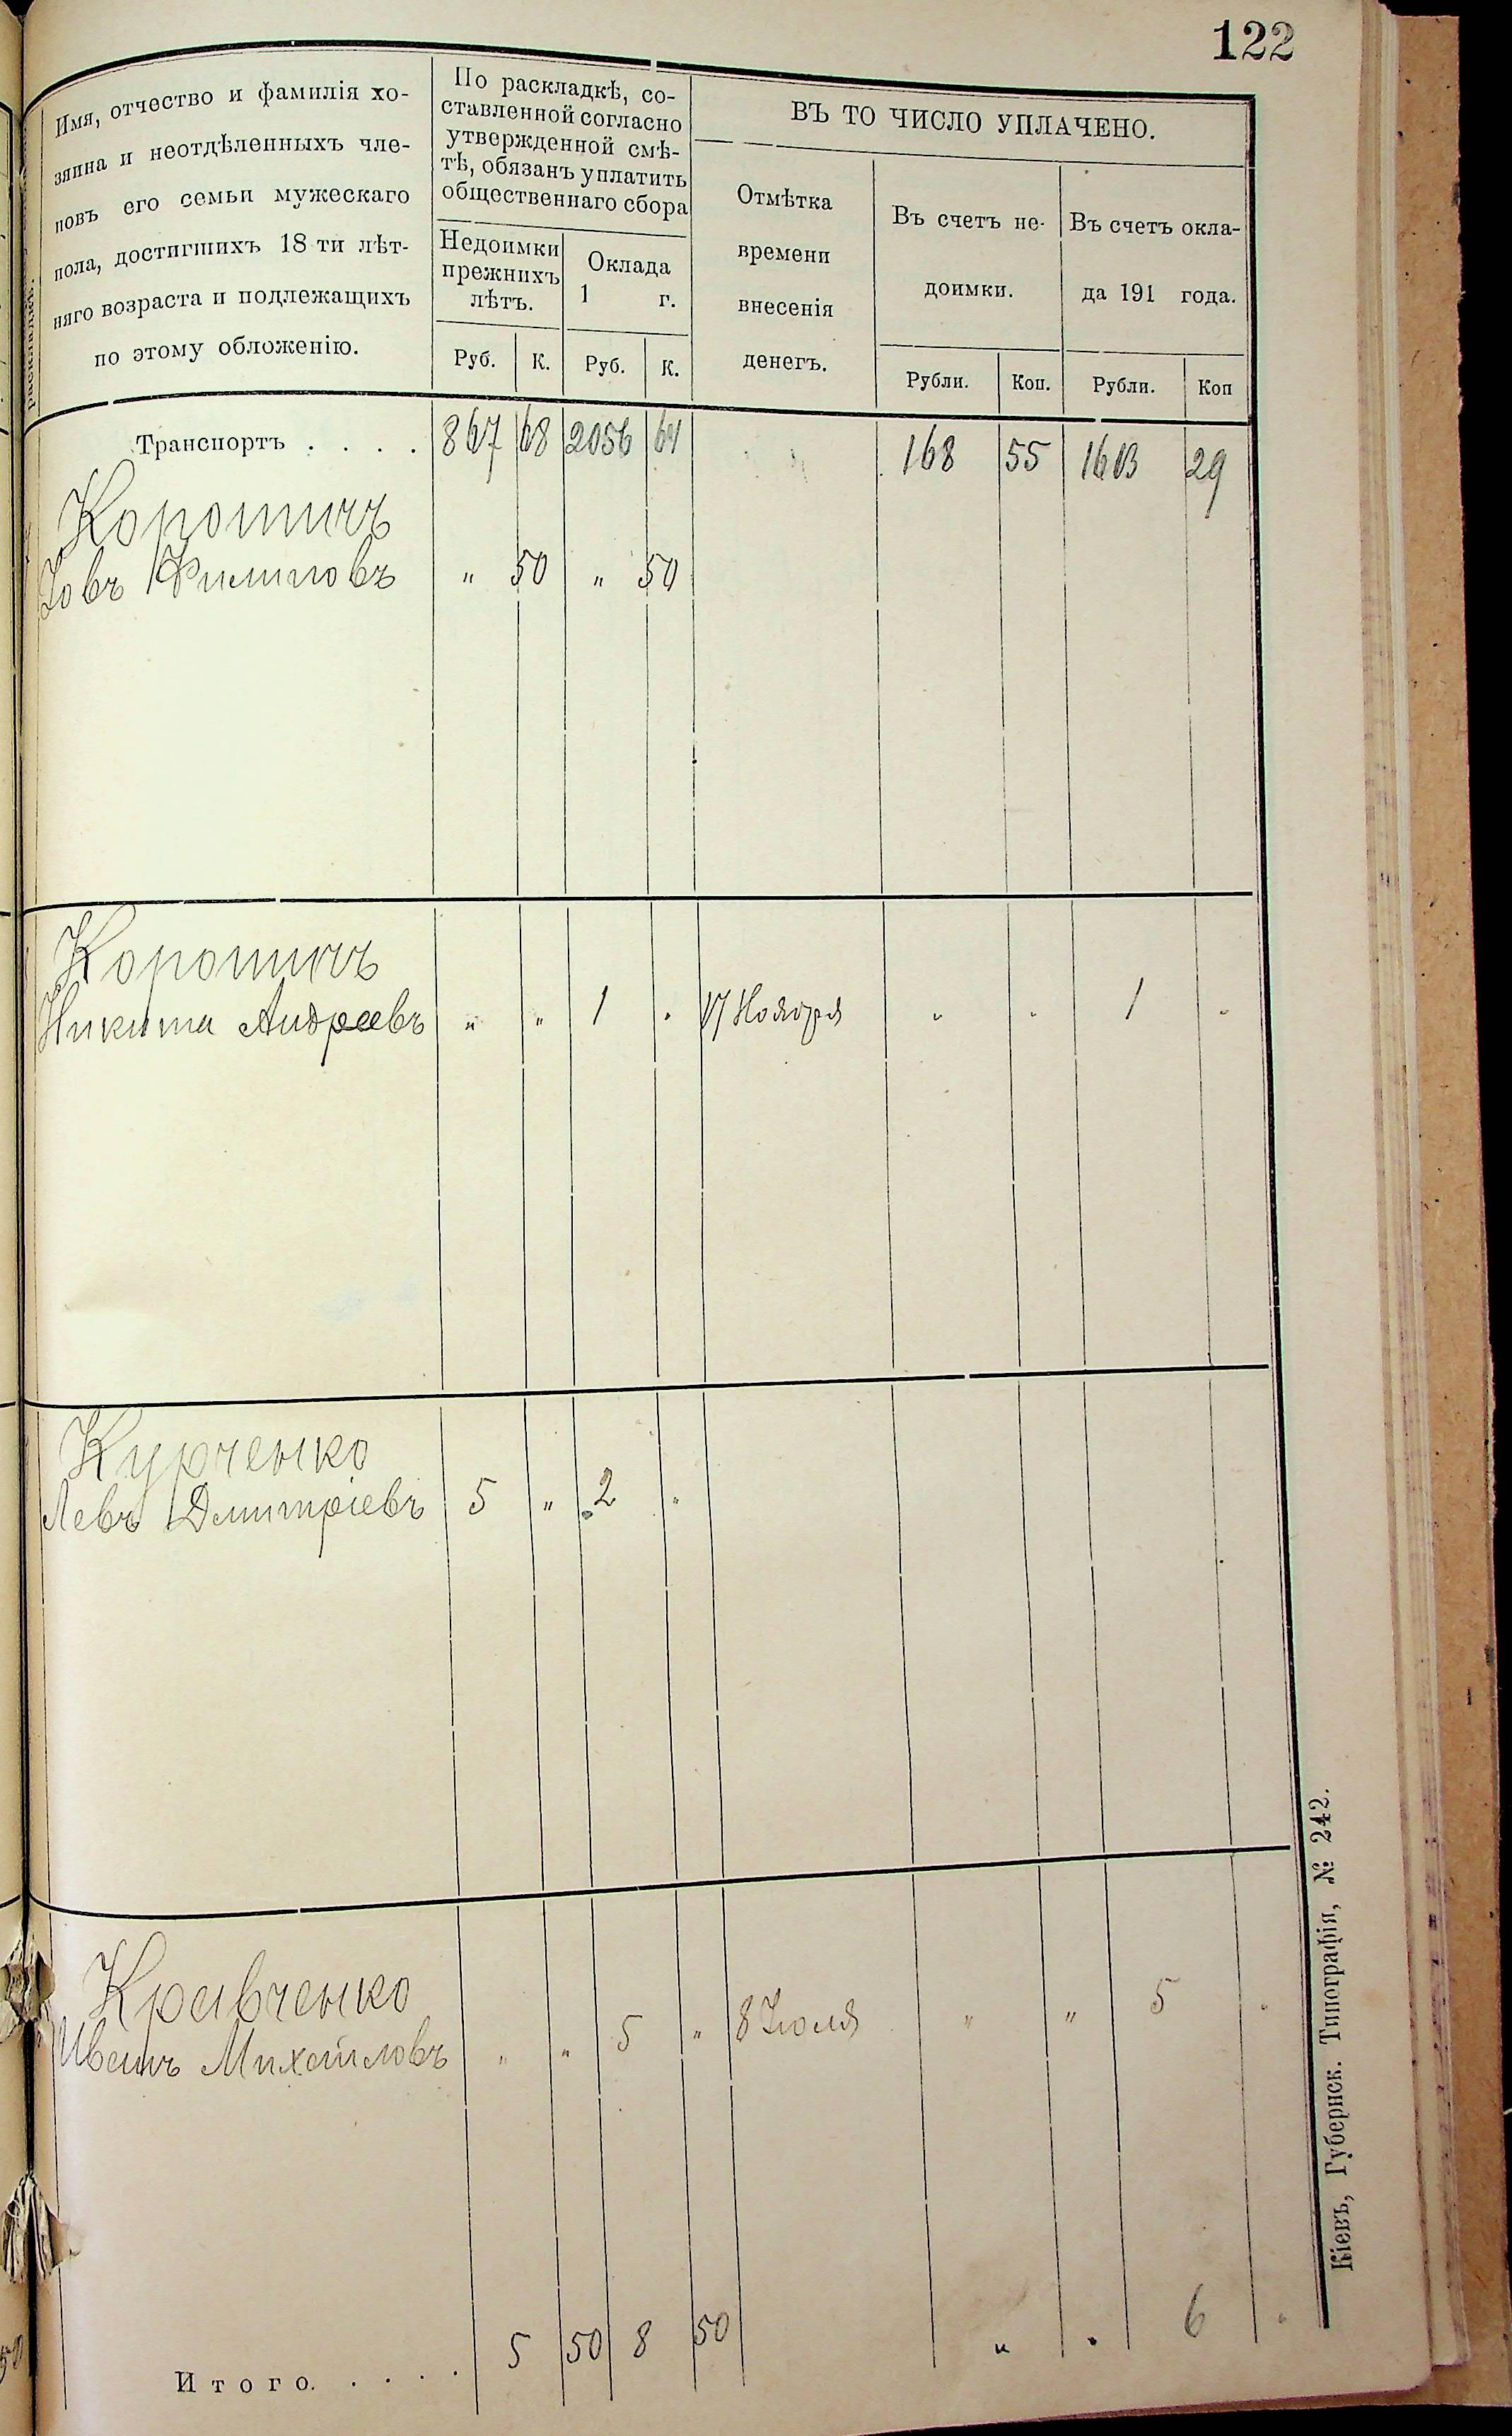 122
Имя, отчество и фамилія хо-
зяина и неотдѣленныхъ чле-
новъ его семьи мужескаго
пола, достигшихъ 18-ти лѣт-
няго возраста и подлежащихъ
по этому обложенію.
По раскладкѣ, со-
ставленной согласно
утвержденной смѣ-
тѣ, обязанъ уплатить
общественнаго сбора
Недоимки
прежнихъ
лѣтъ.
Оклада
1 г.
Руб. К. Руб. К.
ВЪ ТО ЧИСЛО УПЛАЧЕНО.
Отмѣтка
времени
внесенія
денегъ.
Въ счетъ не-
доимки.
Въ счетъ окла-
да 191 года.
Рубли. Коп. Рубли. Коп
Транспортъ . . . . 867 68 2056 64 168 55 1613 29
Коротичъ
Іовъ Филиповъ " 50 " 50
Коротичъ
Никита Андреевъ " " 1 " 17 Ноября " " 1 "
Курченко
Левъ Дмитріевъ 5 " 2 "
Кравченко
Иванъ Михайловъ " " 5 " 8 Іюля " " 5 "
Итого. . . . . 5 50 8 50 " " 6 "
Кіевъ, Губернск. Типографія, № 242.